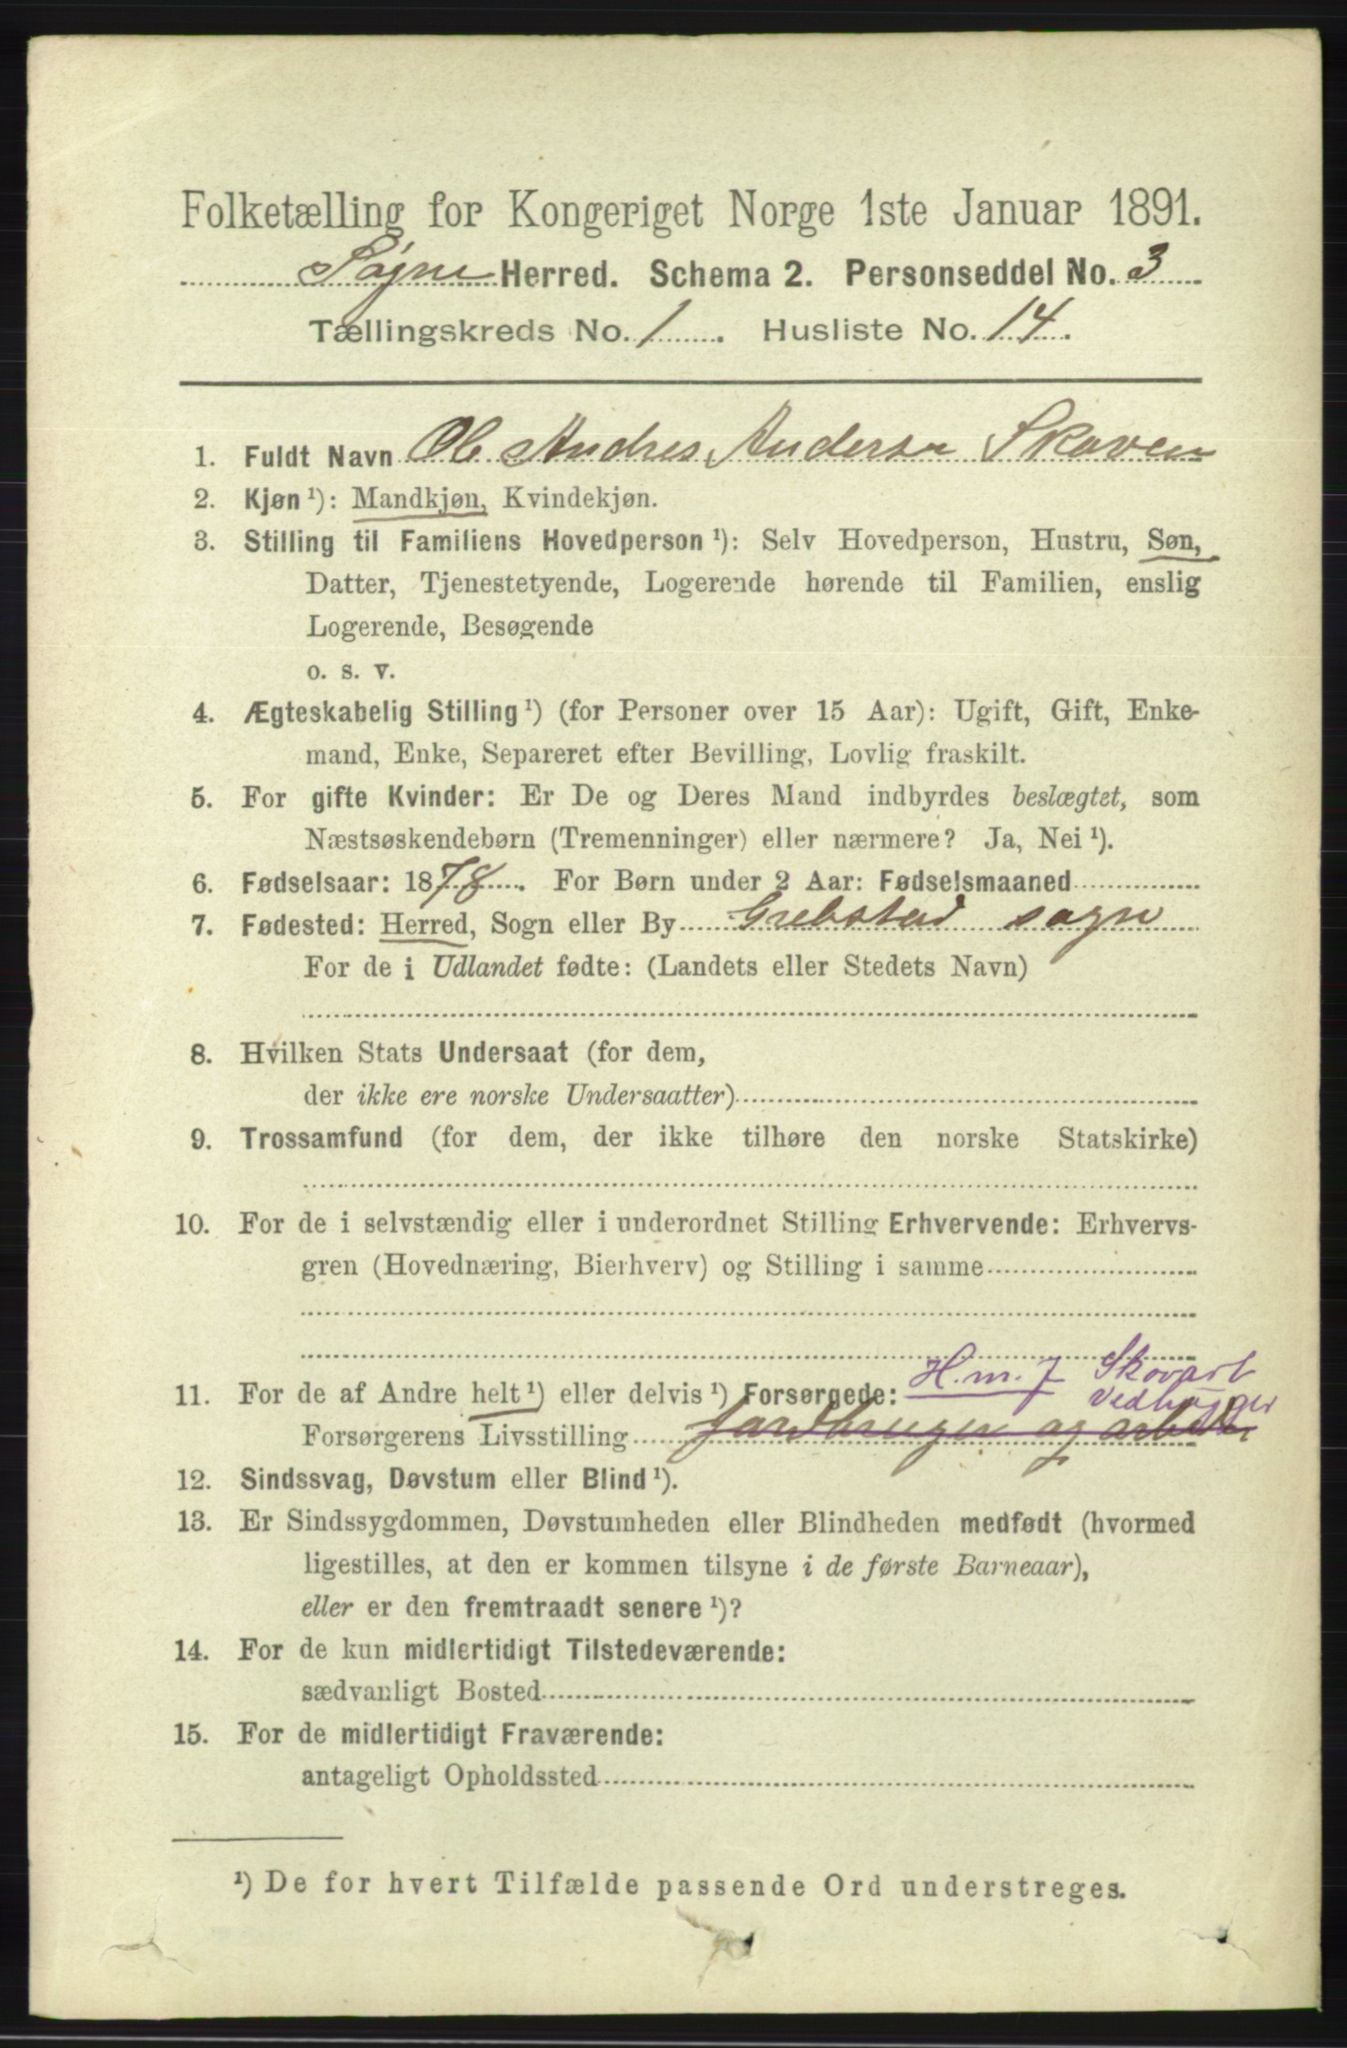 Folketælling for Kongeriget Norge 1ste Januar 1891.
Søgne Herred. Schema 2. Personseddel No. 3
Tællingskreds No. 1. Husliste No. 14.
1. Fuldt Navn Ole Andres Andersn Skoven
2. Kjøn ¹): Mandkjøn, Kvindekjøn.
3. Stilling til Familiens Hovedperson ¹): Selv Hovedperson, Hustru, Søn,
Datter, Tjenestetyende, Logerende hørende til Familien, enslig
Logerende, Besøgende
o. s. v.
4. Ægteskabelig Stilling ¹) (for Personer over 15 Aar): Ugift, Gift, Enke-
mand, Enke, Separeret efter Bevilling, Lovlig fraskilt.
5. For gifte Kvinder: Er De og Deres Mand indbyrdes beslægtet, som
Næstsøskendebørn (Tremenninger) eller nærmere? Ja, Nei ¹).
6. Fødselsaar: 1878. For Børn under 2 Aar: Fødselsmaaned
7. Fødested: Herred, Sogn eller By Grebstad sogn
For de i Udlandet fødte: (Landets eller Stedets Navn)
8. Hvilken Stats Undersaat (for dem,
der ikke ere norske Undersaatter)
9. Trossamfund (for dem, der ikke tilhøre den norske Statskirke)
10. For de i selvstændig eller i underordnet Stilling Erhvervende: Erhvervs-
gren (Hovednæring, Bierhverv) og Stilling i samme
H. m. J Skovarb
11. For de af Andre helt ¹) eller delvis ¹) Forsørgede: Vedhugger
Forsørgerens Livsstilling jordbruger og arbeider
12. Sindssvag, Døvstum eller Blind ¹).
13. Er Sindssygdommen, Døvstumheden eller Blindheden medfødt (hvormed
ligestilles, at den er kommen tilsyne i de første Barneaar),
eller er den fremtraadt senere ¹)?
14. For de kun midlertidigt Tilstedeværende:
sædvanligt Bosted
15. For de midlertidigt Fraværende:
antageligt Opholdssted
¹) De for hvert Tilfælde passende Ord understreges.